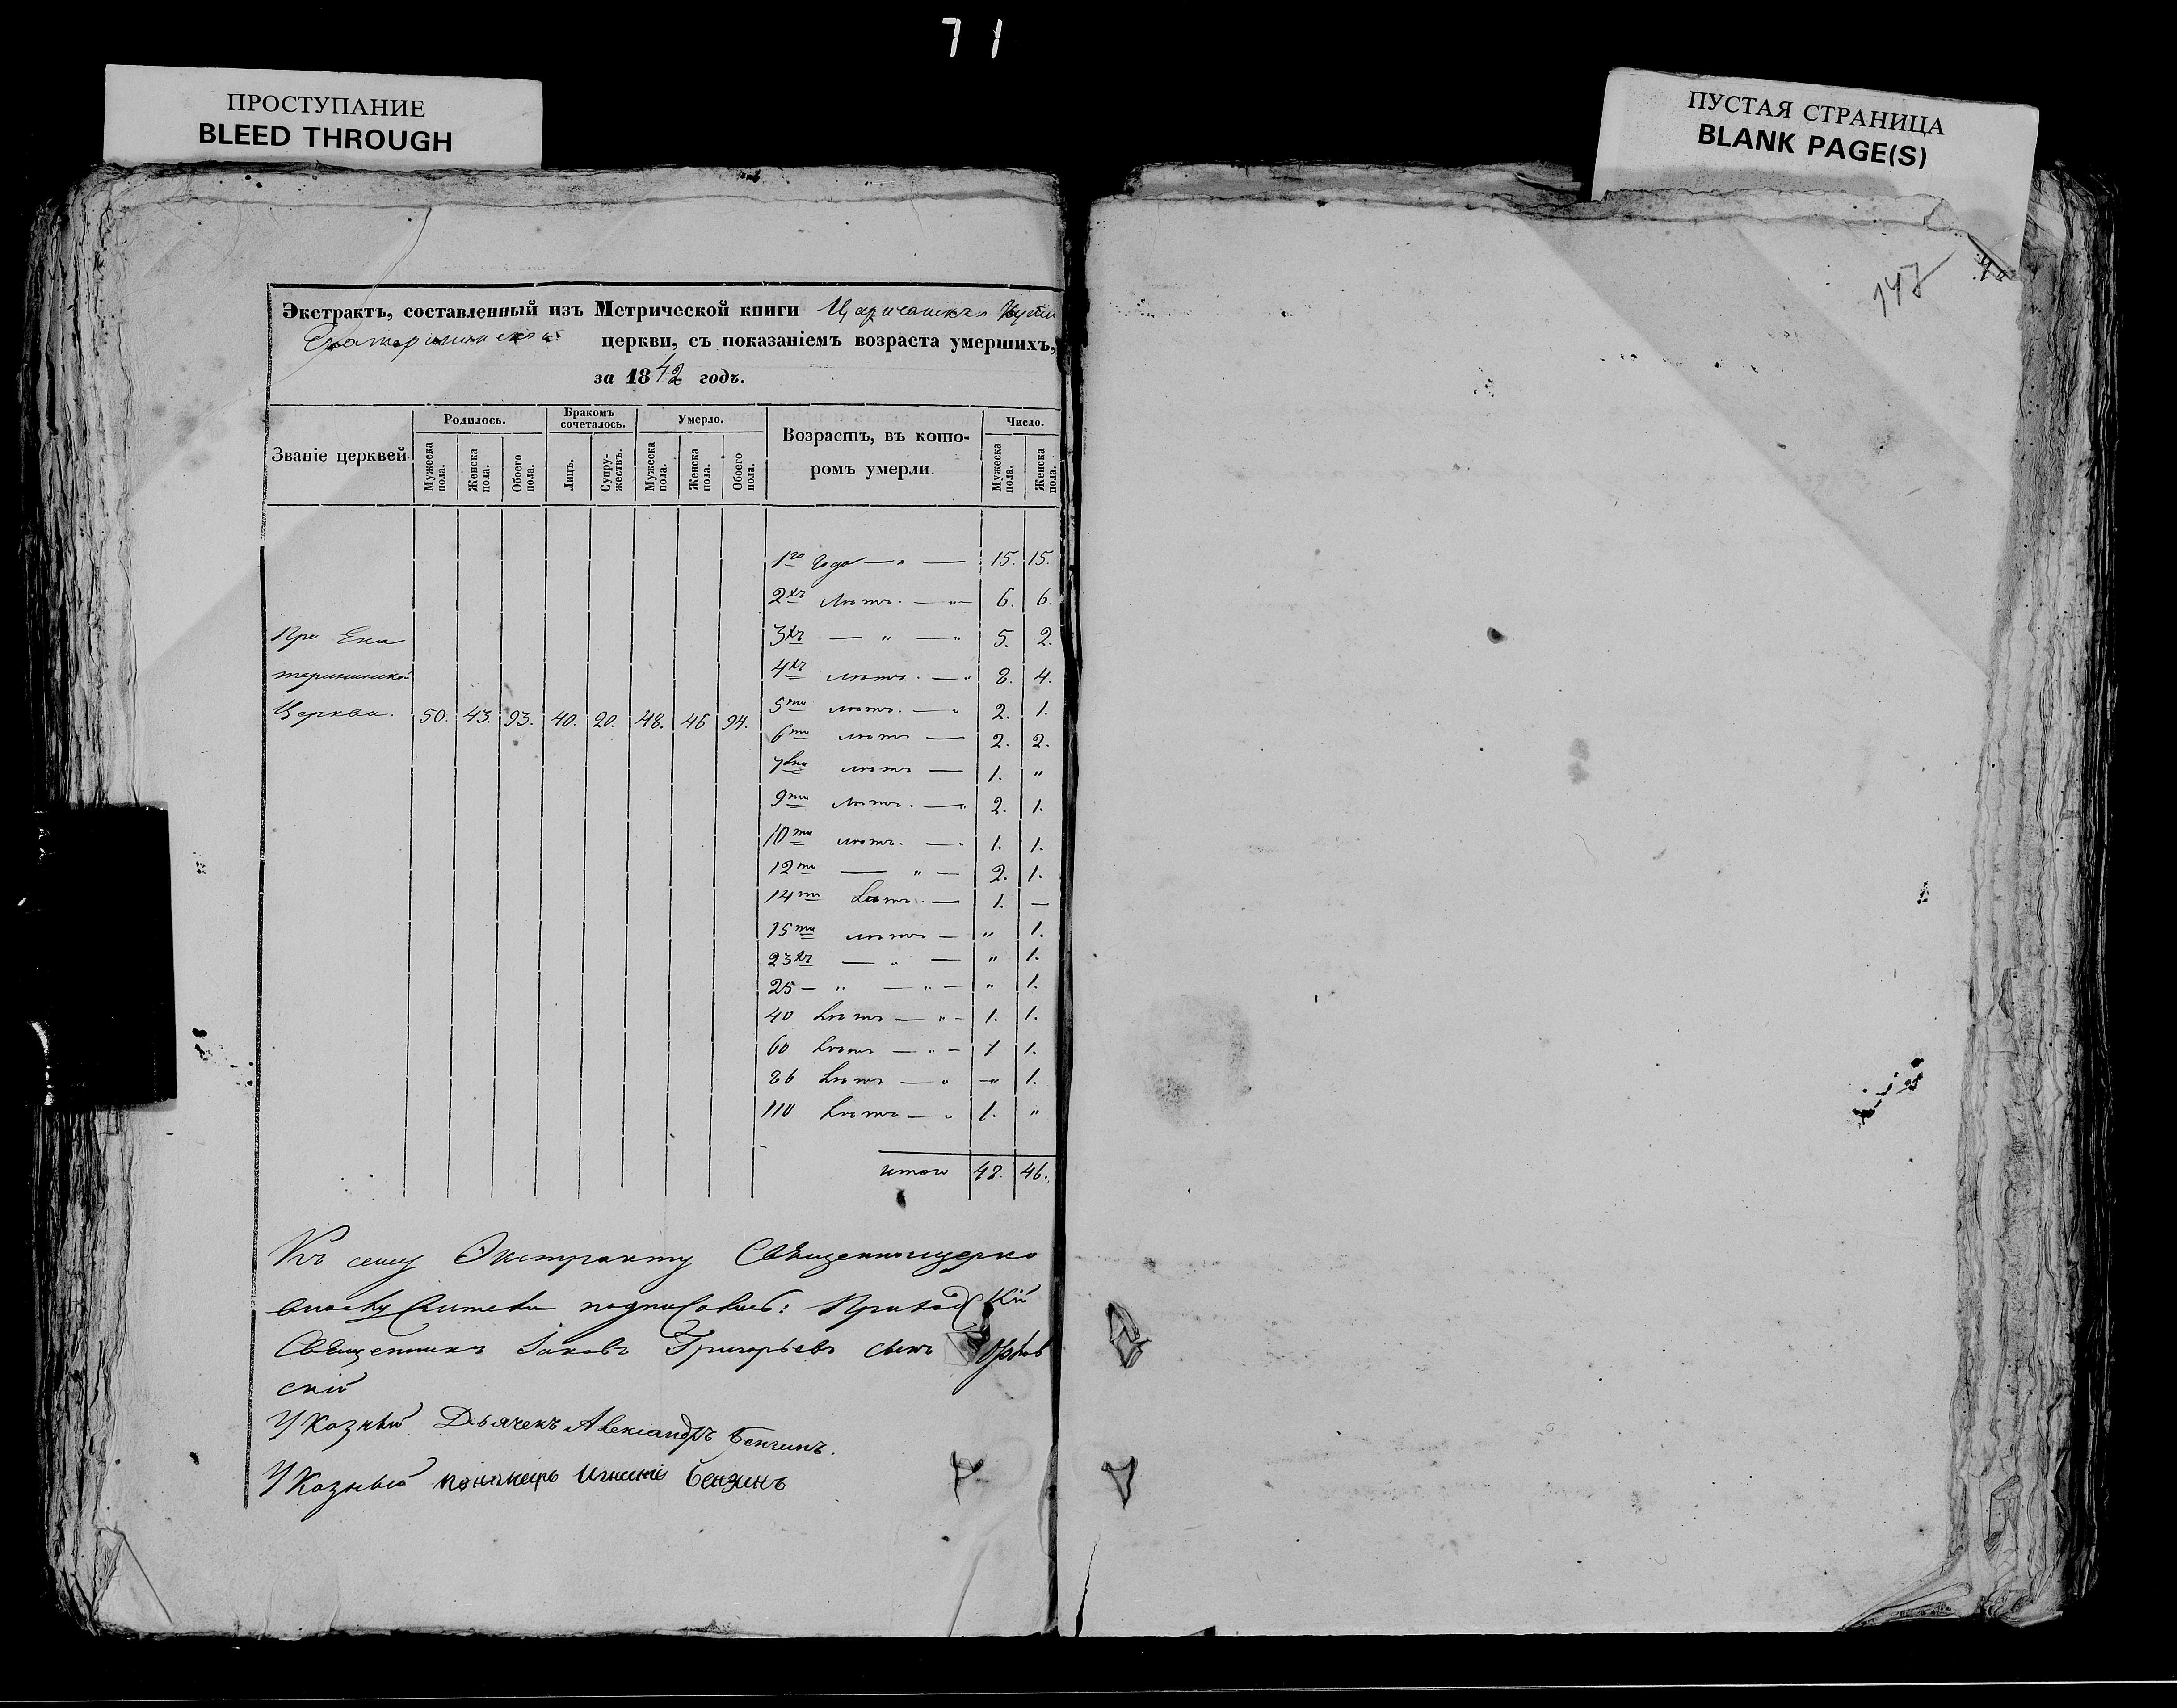 71
ПРОСТУПАНИЕ
BLEED THROUGH
ПУСТАЯ СТРАНИЦА
BLANK PAGE(S)
147
Экстрактъ, составленный изъ Метрической книги
церкви, съ показаніемъ возраста умершихъ,
за 1842 годъ.
Званіе церквей Родилось. Бракомъ сочеталось. Умерло. Возрастъ, въ которомъ умерли. Число.
Мужеска пола. Женска пола. Обоего пола. Лицъ. Супружествъ. Мужеска пола. Женска пола. Обоего пола. Мужеска пола. Женска пола.
1го года — „ — 15. 15.
2хъ лѣтъ. — „ — 6. 6.
При Ека 3хъ — „ — „ 5. 2.
терининской 4хъ лѣтъ. — „ 8. 4.
Церкви. 50. 43. 93. 40. 20. 48. 46 94. 5ти лѣтъ. — „ 2. 1.
6ти лѣтъ — 2. 2.
7ми лѣтъ — 1. „
9ти лѣтъ. — „ 2. 1.
10ти лѣтъ. — 1. 1.
12ти — „ — 2. 1.
14ти лѣтъ. — 1. —
15ти лѣтъ — „ 1.
23хъ — „ — „ 1.
25 — „ — „ — „ 1.
40 лѣтъ — „ — 1. 1.
60 лѣтъ — „ — 1 1.
86 лѣтъ — „ „ 1.
110 лѣтъ — „ 1. „
итого 48. 46.
Къ сему Экстракту Священноцерко
внослужители подписались: Приходскій
Священникъ Іаковъ Григорьевъ сынъ
скій
Указный Дьячекъ Александръ Бензинъ.
Указный пономарь Игнатій Бензинъ